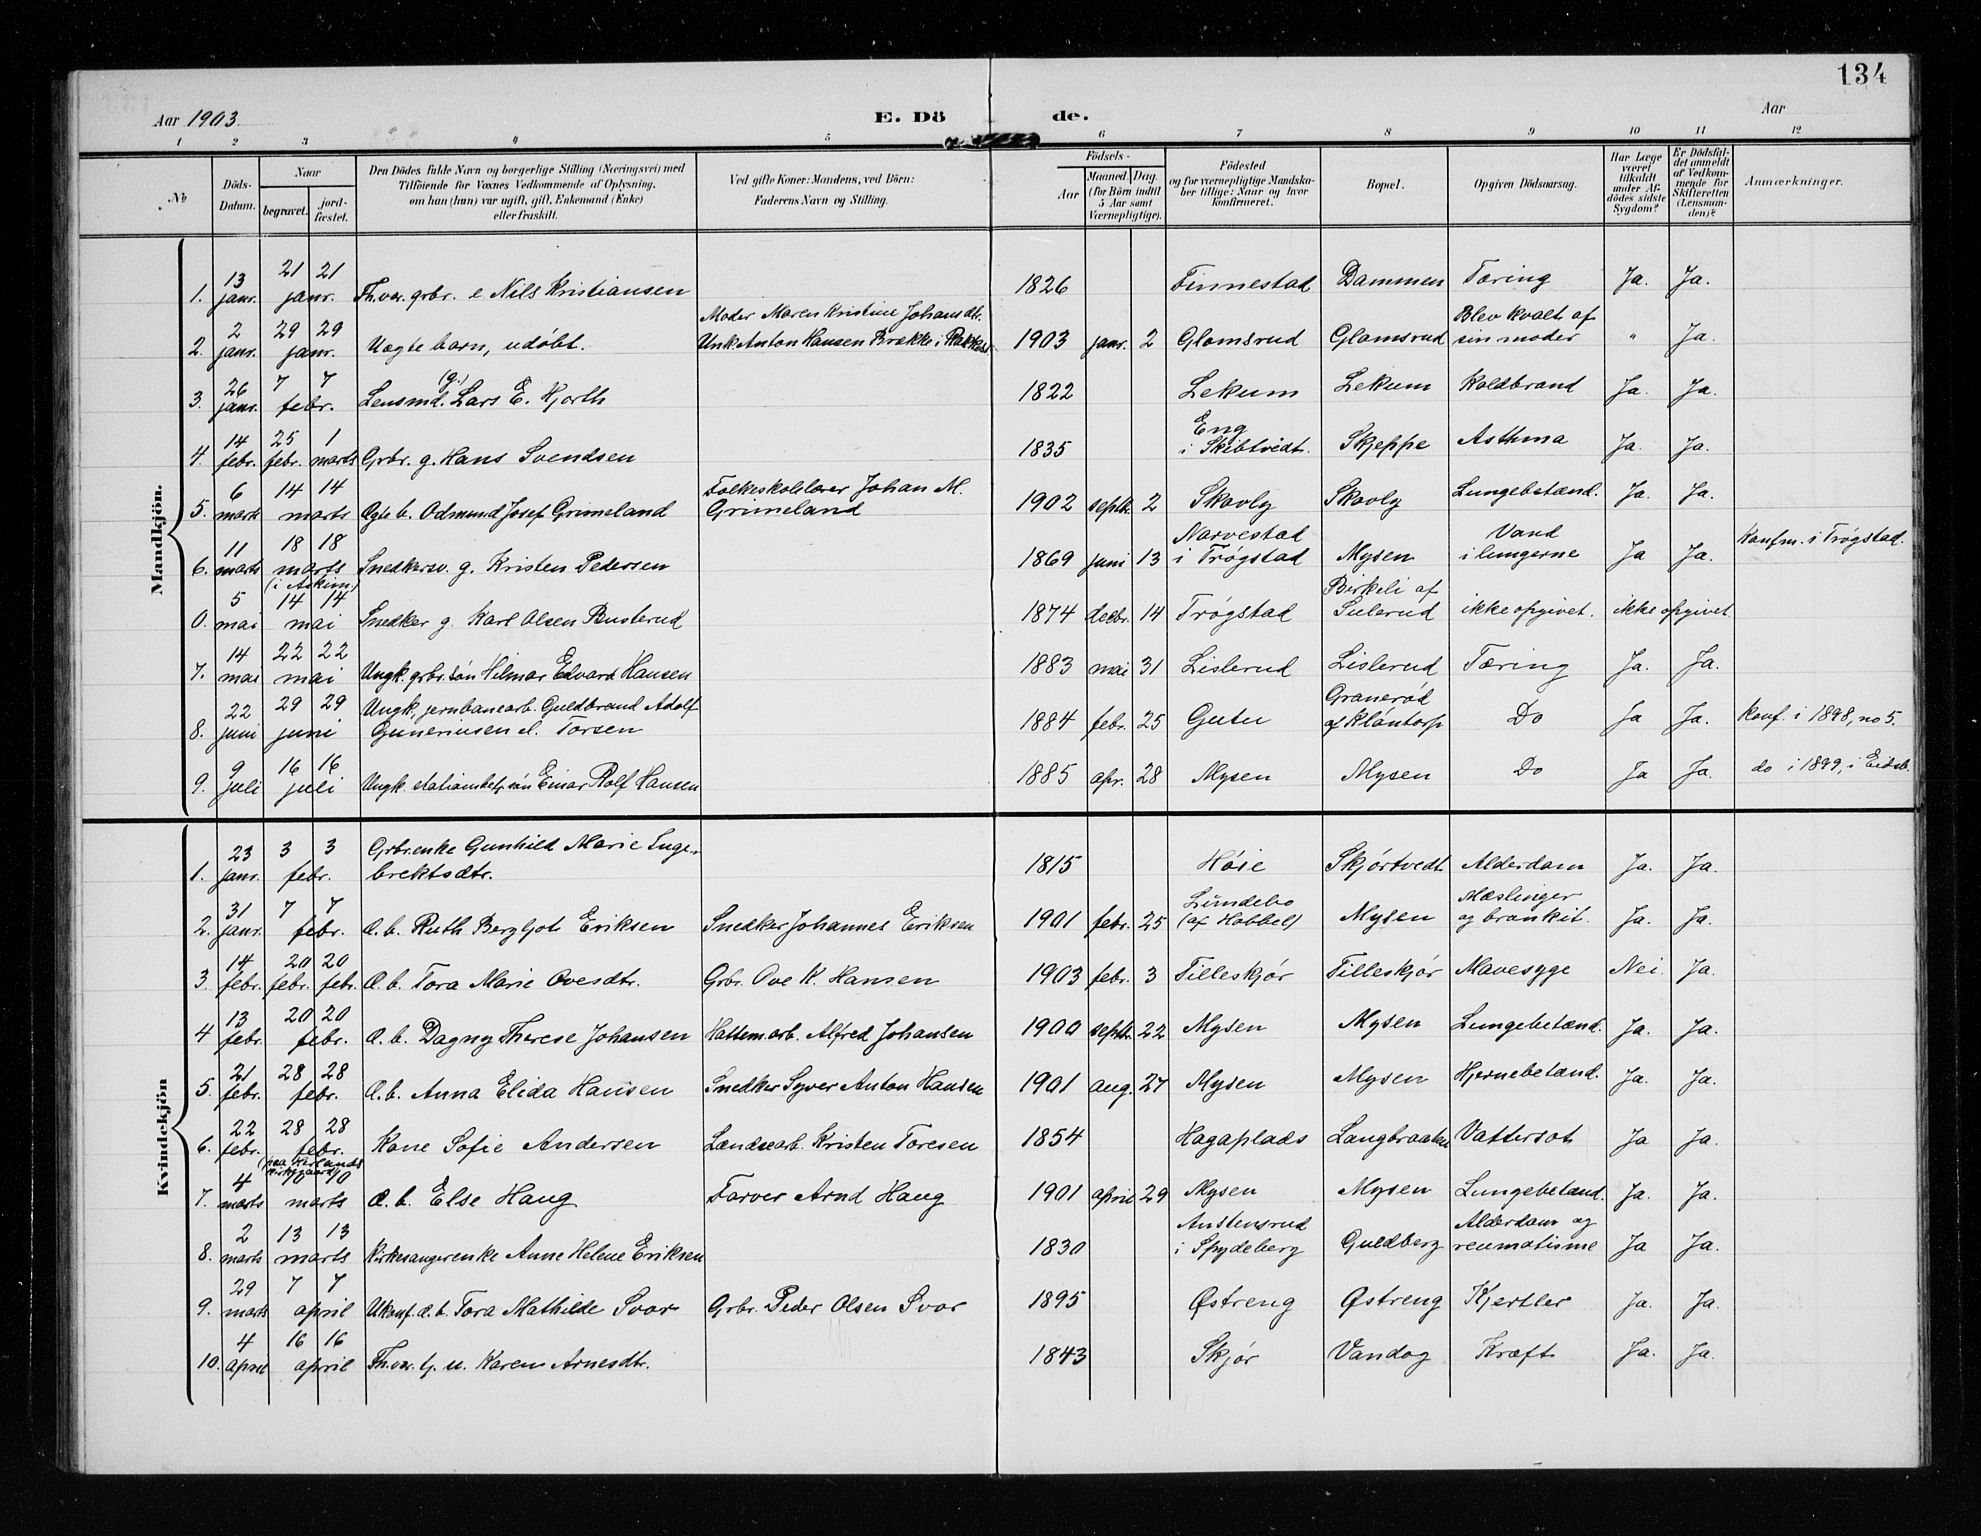 134
Aar 1903.
E. Dö de.
Aar
1 2 3 4 5 6 7 8 9 10 11 12
№
Döds-Datum.
Naar
begravet.
jord-fæstet.
Den Dödes fulde Navn og borgerlige Stilling (Næringsvei) med
Tilföiende for Voxnes Vedkommende af Oplysning,
om han (hun) var ugift, gift, Enkemand (Enke)
eller fraskilt.
Ved gifte Koner: Mandens, ved Börn:
Faderens Navn og Stilling.
Födsels-
Aar
Maaned. Dag.
(for Börn indtil
5 Aar samt
Værnepligtige).
Födested
og for værnepligtige Mandska-
ber tillige: Naar og hvor
konfirmeret.
Bopæl.
Opgiven Dödsaarsag.
Har Læge
været
tilkaldt
under Af-
dödes sidste
Sygdom?
Er Dödsfal-
det anmeldt
af Vedkom-
mende for
Skifteretten
(Lensman-
den)?
Anmærkninger.
Mandkjön.
1. 13 janr. 21 21 janr. Th.vær. grbr. e Nils Kristiansen 1826 Finnestad Dammen Tæring Ja. Ja.
2. 2 janr. 29 29 janr. Uægte barn, udøbt. Moder Maren Kristine Johansdt.
Unk. Anton Hansen Brække i Rakkest. 1903 janr. 2 Glomsrud Glomsrud Blev kvalt af
sin moder " Ja.
3. 26 janr. 7 7 febr. Lensmd. (g.) Lars E. Hjorth 1822 Lekum Lekum Koldbrand Ja. Ja.
4. 14 febr. 25 febr. 1 marts Grbr. g. Hans Svendsen 1835 Eng
i Skibtvedt. Skjeppe Asthma Ja. Ja.
5. 6 marts 14 14 marts Ægte b. Odmund Josef Grimeland Folkeskolelærer Johan M.
Grimeland 1902 septbr. 2 Skovly Skovly Lungebetænd. Ja. Ja.
6. 11 marts 18 18 marts (i Askim) Snedkersv. g. Kristen Pedersen 1869 juni 13 Narvestad
i Trøgstad Mysen Vand
i lungerne Ja Ja. Konfm. i Trøgstad.
0. 5 mai 14 14 mai Snedker g. Karl Olsen Busterud 1874 decbr. 14 Trøgstad Birkeli af
Sulerud ikke opgivet. ikke opgivet
7. 14 mai 22 22 mai Ungk. grbr. søn Hilmar Edvard Hansen 1883 mai 31 Lislerud Lislerud Tæring Ja. Ja.
8. 22 juni 29 29 juni Ungk. jernbanearb. Guldbrand Adolf
Gunerinsen el. Torsen 1884 febr. 25 Gutu Granerød
af Kløntorp Do Ja Ja. Konf. i 1898, no 5.
9. 9 juli 16 16 juli Ungk. stationbetj. søn Einar Rolf Hansen 1885 apr. 28 Mysen Mysen Do Ja Ja. do i 1899, i Eidsb.
Kvindekjön
1. 23 janr. 3 3 febr. Grbr.enke Gunhild Marie Inge-
brektsdtr. 1815 Høie Skjørtvedt Alderdom Ja. Ja.
2. 31 janr. 7 7 febr. Æ. b. Ruth Bergljot Eriksen Snedker Johannes Eriksen 1901 febr. 25 Lundebo
(af Hobbøl) Mysen Mæslinger
og bronkit. Ja. Ja.
3. 14 febr. 20 febr. 20 febr. Æ. b. Tora Marie Ovesdtr. Grbr. Ove K. Hansen 1903 febr. 3 Tilleskjør Tilleskjør Mavesyge Nei Ja.
4 13 febr. 20 20 febr. Æ. b. Dagny Therese Johansen Hattem.arb. Alfred Johansen 1900 septbr. 22 Mysen Mysen Lungebetænd. Ja. Ja.
5. 21 febr. 28 28 febr. Æ. b. Anna Elida Hansen Snedker Syver Anton Hansen 1901 aug. 27 Mysen Mysen Hjernebetænd. Ja. Ja.
6. 22 febr. 28 28 febr. Kone Sofie Andersen Lændsearb. Kristen Toresen 1854 Hagaplads Langbraaten Vattersot Ja Ja.
7. 4 marts (paa Kirlands kirkegaard) 10 10 marts Æ. b. Else Haug Farver Arnd Haug 1901 april 29 Mysen Mysen Lungebetænd. Ja. Ja.
8. 2 marts 13 13 marts Kirkesangerenke Anne Helene Eriksen 1830 Austensrud
i Spydeberg Guldberg Alderdom og
reumatisme Ja Ja.
9. 29 marts 7 7 april Ukonf. æ. b. Tora Mathilde Svor Grbr. Peder Olsen Svor 1895 Østreng Østreng Kjertler Ja. Ja.
10. 4 april 16 16 april Th.vær. u. Karen Arnesdtr. 1843 Skjør Vandog Kræft Ja. Ja.